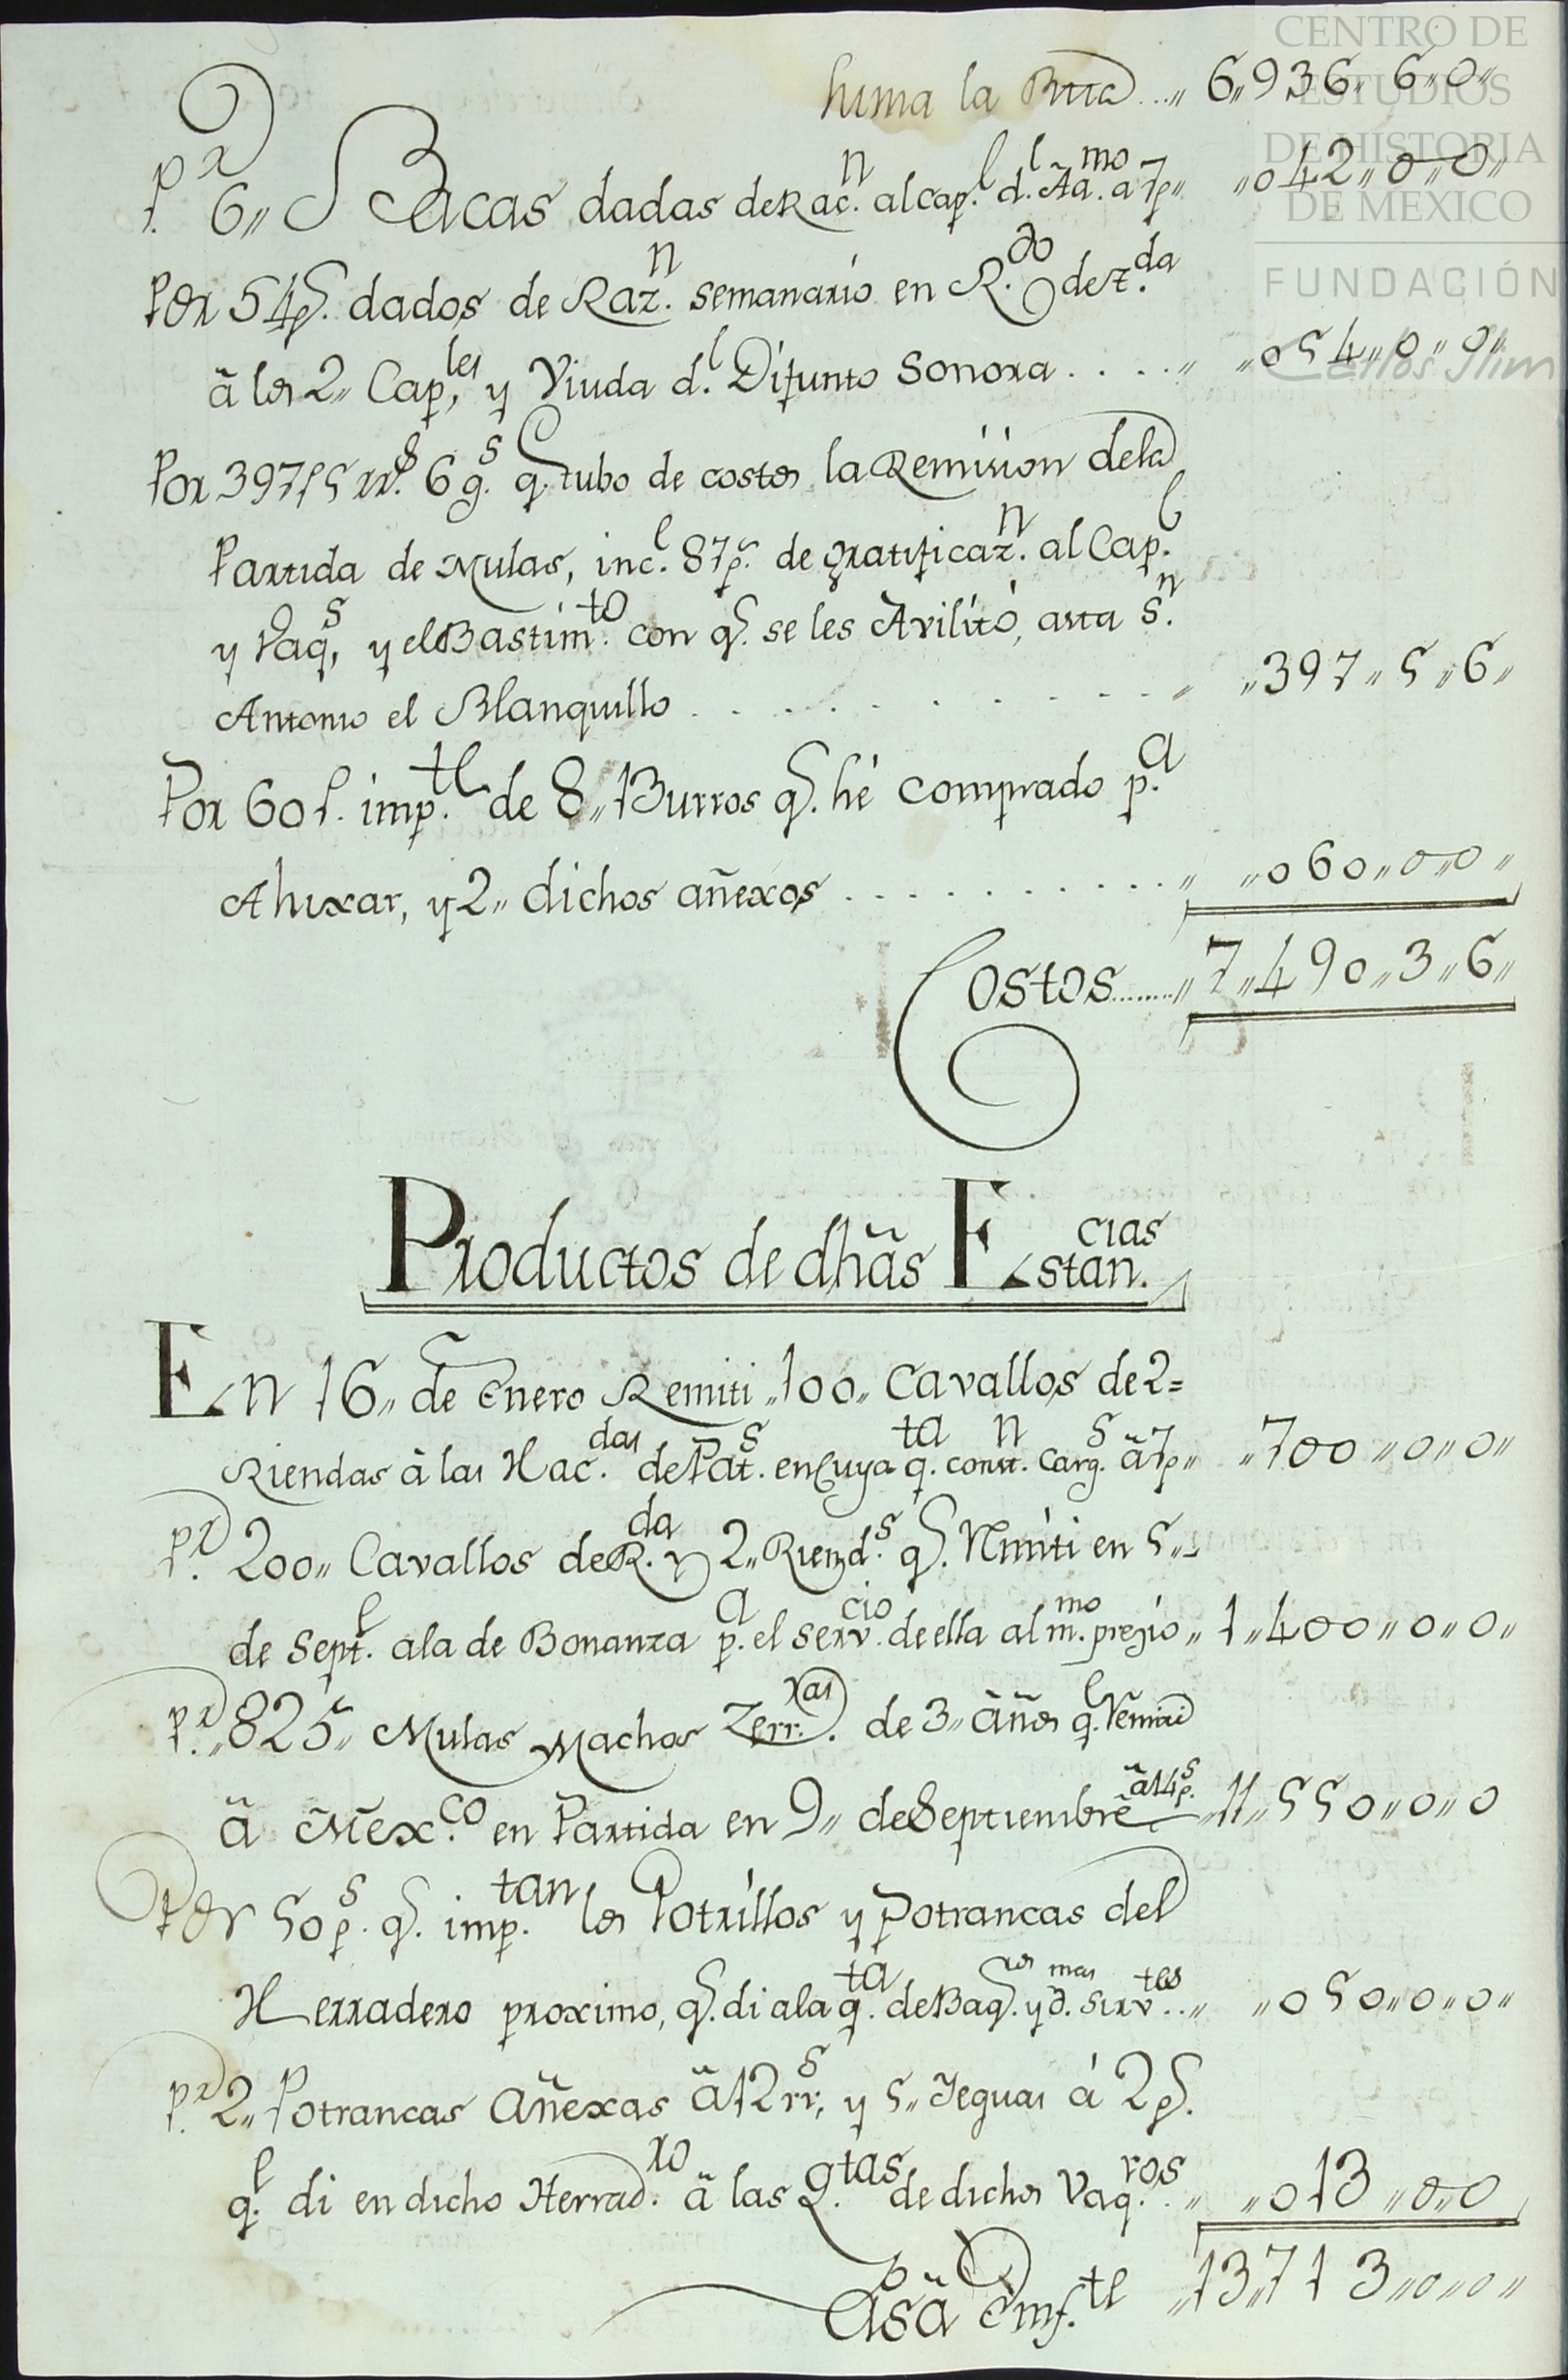 Suma la Bta ... „ 6„936„ 6„0„
p.r 6„ Bacas dadas de Rac.n al cap.l d.l Ãa.mo a 7p„ „042„0„0„
Por 54p.s dados de Raz.n semanario en R.do de t.da
â los 2„ Cap.les, y Viuda d.l Difunto Sonora . . . . „ „054„0„0„
Por 397p 5 rr.s 6 g.s q.e tubo de costos la Remision dela
Partida de Mulas, inc.l 87p.s de gratificaz.n al Cap.l
y Vaq.s, y el Bastim.to con q.e se les Avilitó, asta S.n
Antonio el Blanquillo . . . . . . . . . . „ „397„5„6„
Por 60 p. imp.te de 8„ Burros q.e hé comprado p.a
Ahixar, y 2„ dichos añexos . . . . . . . . . . . „ „060„0„0„
Costos........„ 7„490„3„6„
Productos de dhãs Estan.cias
En 16„ de Enero Remiti „100„ Cavallos de 2=
Riendas â las Hac.das de Pat.s en Cuya q.ta const.n Carg.s â 7p„ „700„0„0„
p.r 200„ Cavallos de R.da y 2„ Riend.s q.e Rmiti en 5„
de Sept.e ala de Bonanza p.a el serv.cio de ella al m.mo prezio„ 1„400„0„0„
p.r „825„ Mulas Machos Zerr.ras de 3„ años q.e Remiti
â Mex.co en Partida en 9„ de Septiembre â 14p.s „11„550„0„0
Por 50p.s q.e imp.tan los Potrillos y Potrancas del
Herradero proximo, q.e di ala q.ta de Baq.ros y d.mas sirv.tes..„ „050„0„0„
p.r 2„ Potrancas Añexas â 12 rr.s, y 5„ Yeguas á 2p.s
q.e di en dicho Herrad.ro â las Q.tas de dichos Vaq.ros . „ „013„0„0
Pasã Emf.te „13„713„0„0„
CENTRO DE
ESTUDIOS
DE HISTORIA
DE MÉXICO
FUNDACIÓN
Carlos Slim